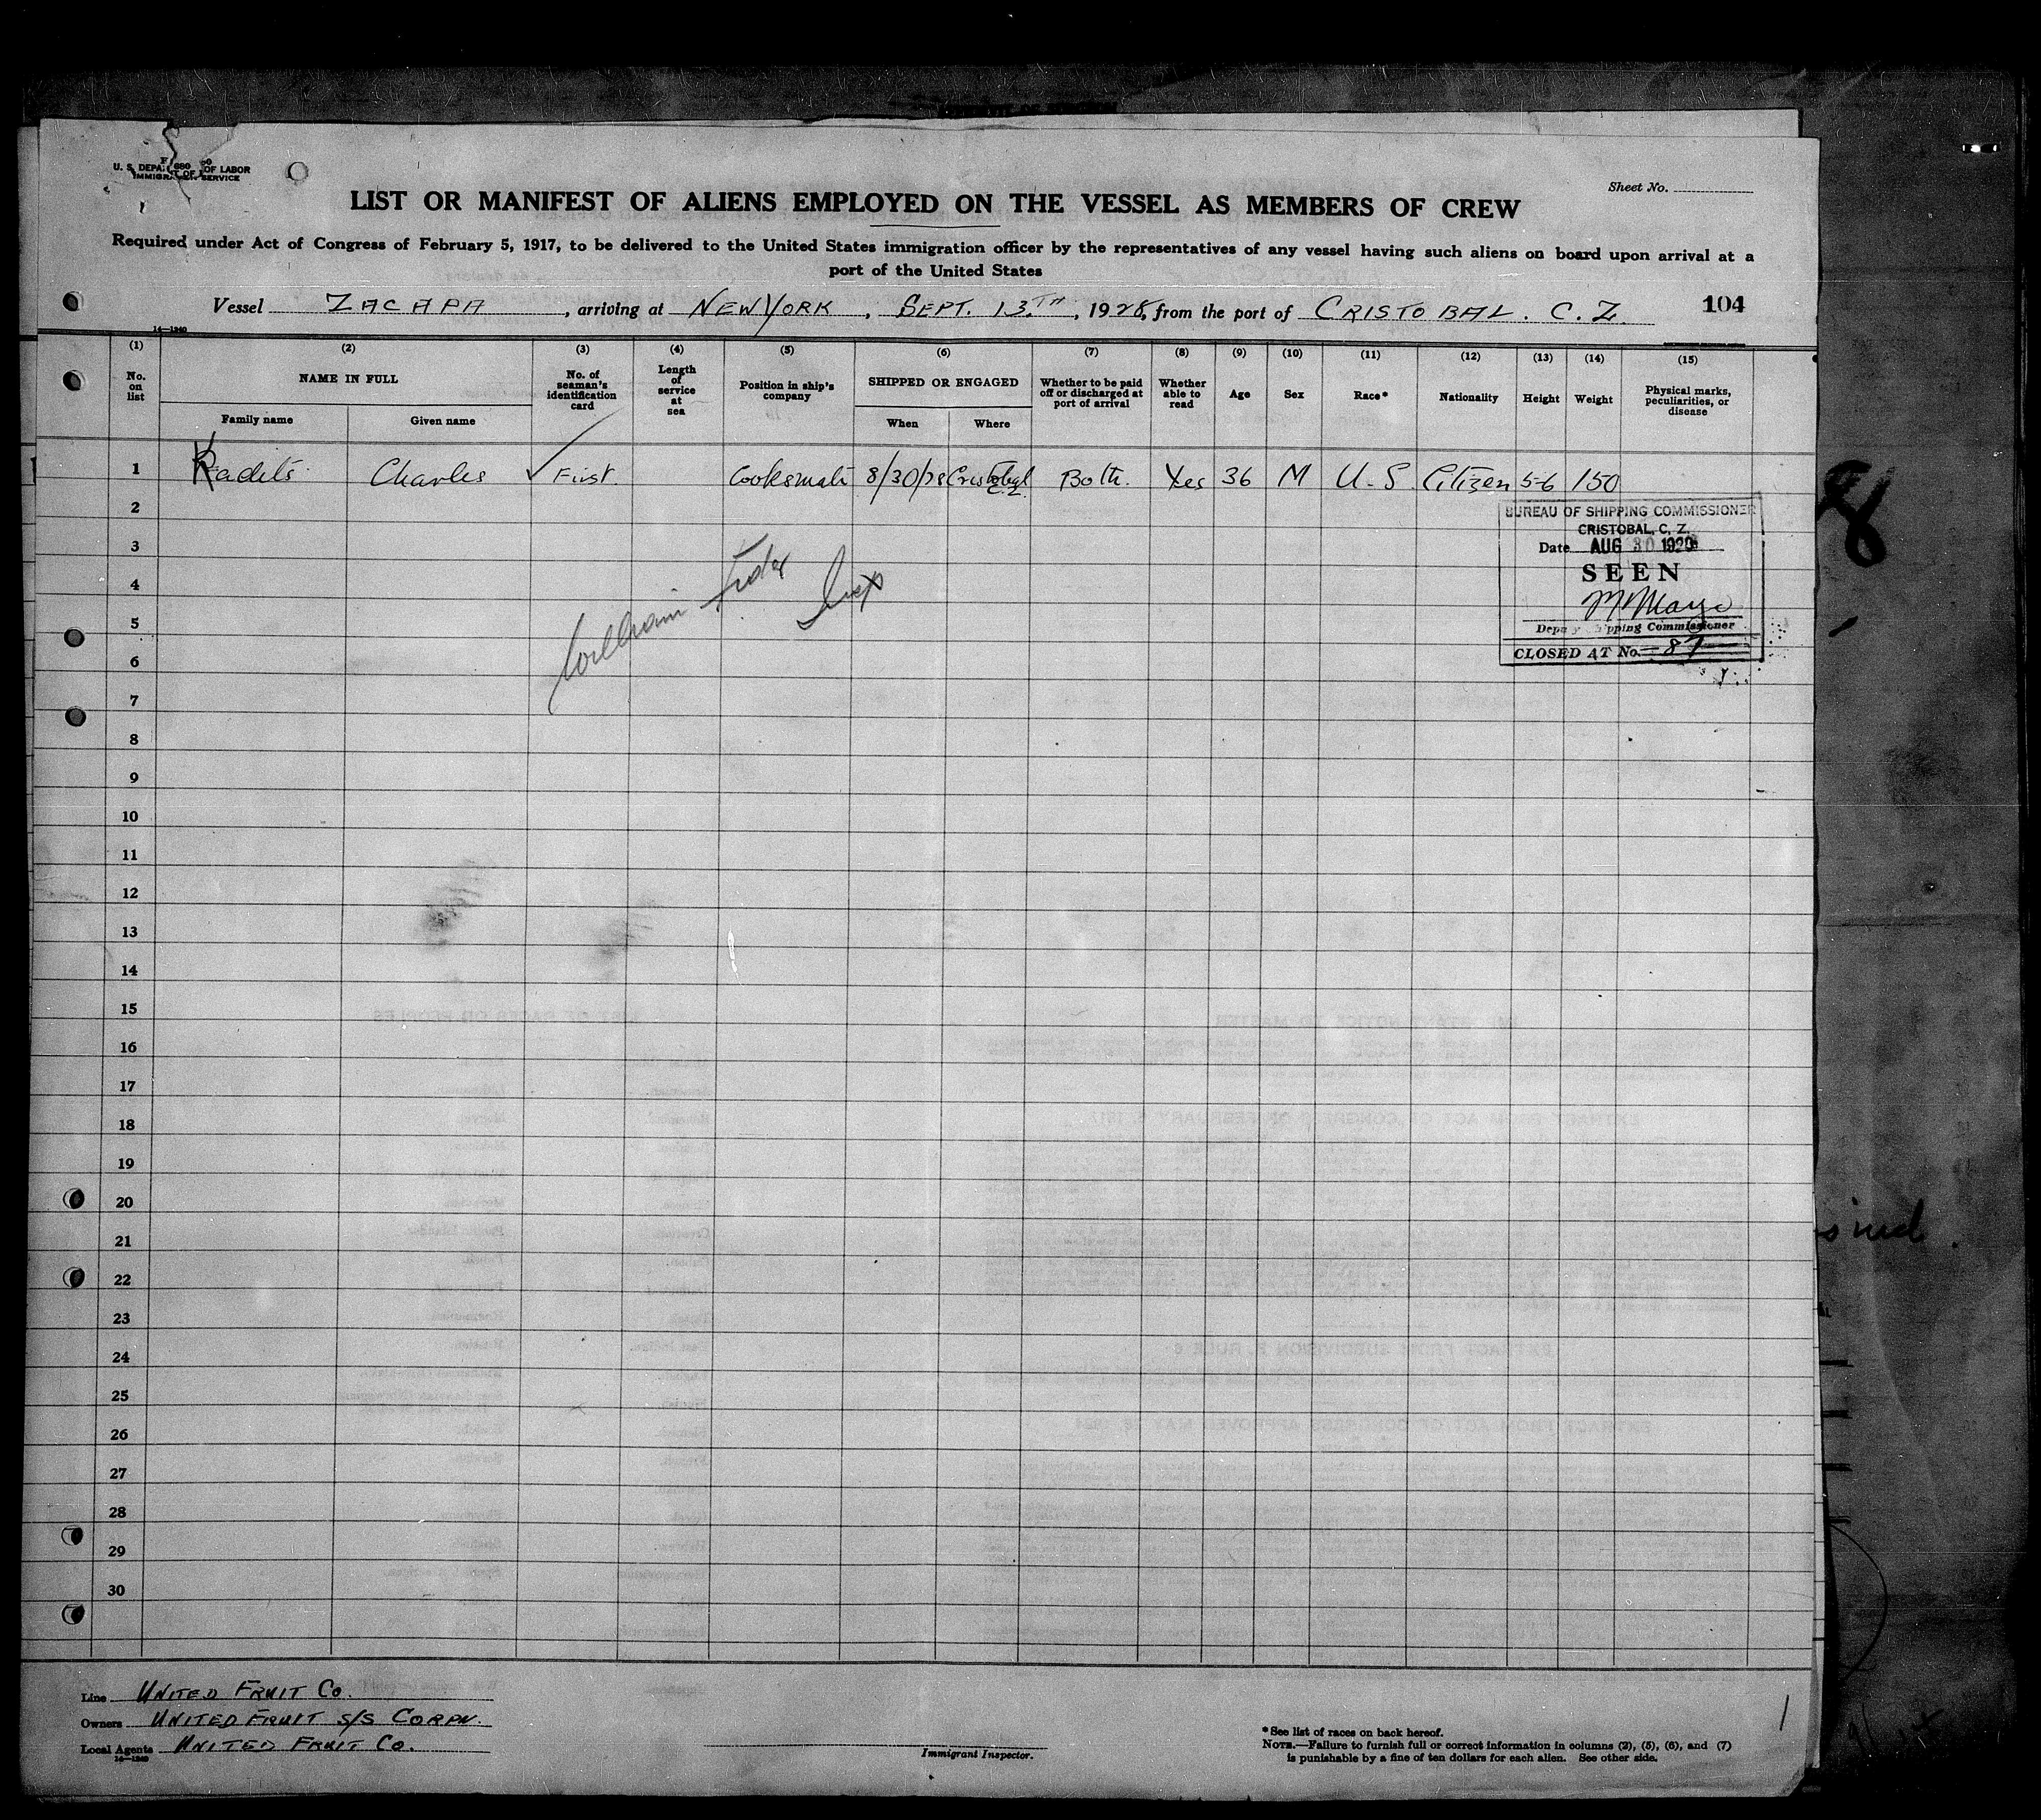 U. S. DEPA OF LABOR
IMMIGR SERVICE
Sheet No.
LIST OR MANIFEST OF ALIENS EMPLOYED ON THE VESSEL AS MEMBERS OF CREW
Required under Act of Congress of February 5, 1917, to be delivered to the United States immigration officer by the representatives of any vessel having such aliens on board upon arrival at a
port of the United States
Vessel ZACAPA, arriving at NEW YORK, SEPT. 13TH, 1928, from the port of CRISTOBAL. C. Z. 104
14—1240
(1) (2) (3) (4) (5) (6) (7) (8) (9) (10) (11) (12) (13) (14) (15)
No. on list
NAME IN FULL
Family name
Given name
No. of seaman's identification card
Length of service at sea
Position in ship's company
SHIPPED OR ENGAGED
When
Where
Whether to be paid off or discharged at port of arrival
Whether able to read
Age
Sex
Race*
Nationality
Height
Weight
Physical marks, peculiarities, or disease
1 Charles ✓ First. Cooksmate 8/30/28 Cristobal Yes 36 M U.S. Citizen 5-6 150
2
3
4
5
6
7
8
9
10
11
12
13
14
15
16
17
18
19
20
21
22
23
24
25
26
27
28
29
30
William
BUREAU OF SHIPPING COMMISSIONER
CRISTOBAL, C. Z.
Date AUG 30 1928
SEEN
Deputy Shipping Commissioner
CLOSED AT No. 87
8
Line UNITED FRUIT CO.
Owners UNITED FRUIT S/S CORPN.
Local Agents UNITED FRUIT CO.
14—1240
Immigrant Inspector.
*See list of races on back hereof.
NOTE.—Failure to furnish full or correct information in columns (2), (5), (6), and (7)
is punishable by a fine of ten dollars for each alien. See other side.
1